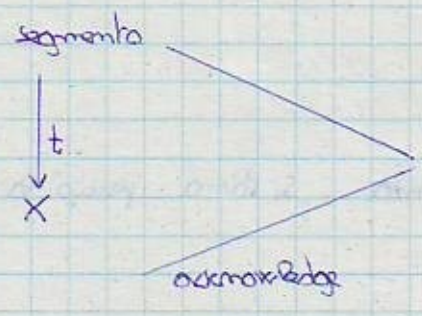 segmento
t
X
acknowledge